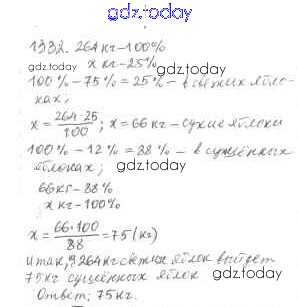 gdz.today
1332. 264 кг – 100%
x кг – 25%
gdz.today gdz.today
100% – 75% = 25% – в свежих ябло-
ках;
x = 264·25/100; x = 66 кг – сухие яблоки
gdz.today
100% – 12% = 88% – в сушённых
яблоках;
gdz.today
66 кг – 88%
x кг – 100%
x = 66·100/88 = 75 (кг)
gdz.today gdz.today
итак, 264 кг свежих яблок выйдет
75 кг сушённых яблок
Ответ: 75 кг.
gdz.today